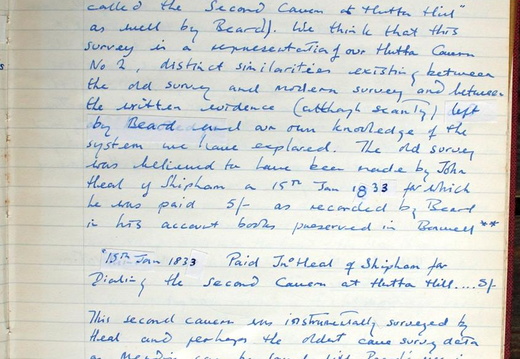 called the Second Cavern at Hutton Hill"
as well by Beard). We think that this
survey is a representation of our Hutton Cavern
No 2, distinct similarities existing between
the old survey and modern survey and between
the written evidence (although scanty) left
by Beard and our own knowledge of the
system we have explored. The old survey
was believed to have been made by John
Heal of Shipham on 15TH Jan 1833 for which
he was paid 5/- as recorded by Beard
in his account books preserved in Banwell**
"15TH Jan 1833 Paid Jno Heal of Shipham for
Dialing the Second Cavern at Hutton Hill....5/-
This second cavern was instrumentally surveyed by
Heal and perhaps the oldest cave survey data